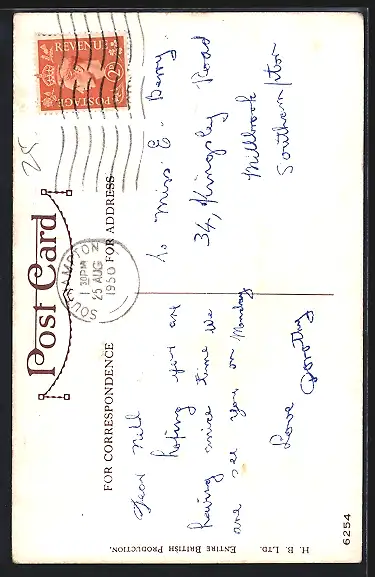 Post Card
FOR CORRESPONDENCE
FOR ADDRESS
REVENUE
POSTAGE
2D
SOUTHAMPTON
1 30PM
25 AUG
1950
25.
Dear Nell
hoping you are
having nice time We
are see you on Monday
Love
Dorothy
To Miss E. Berry.
34, Kingsley Road
Millbrook
Southampton
H. B. LTD. ENTIRE BRITISH PRODUCTION.
6254